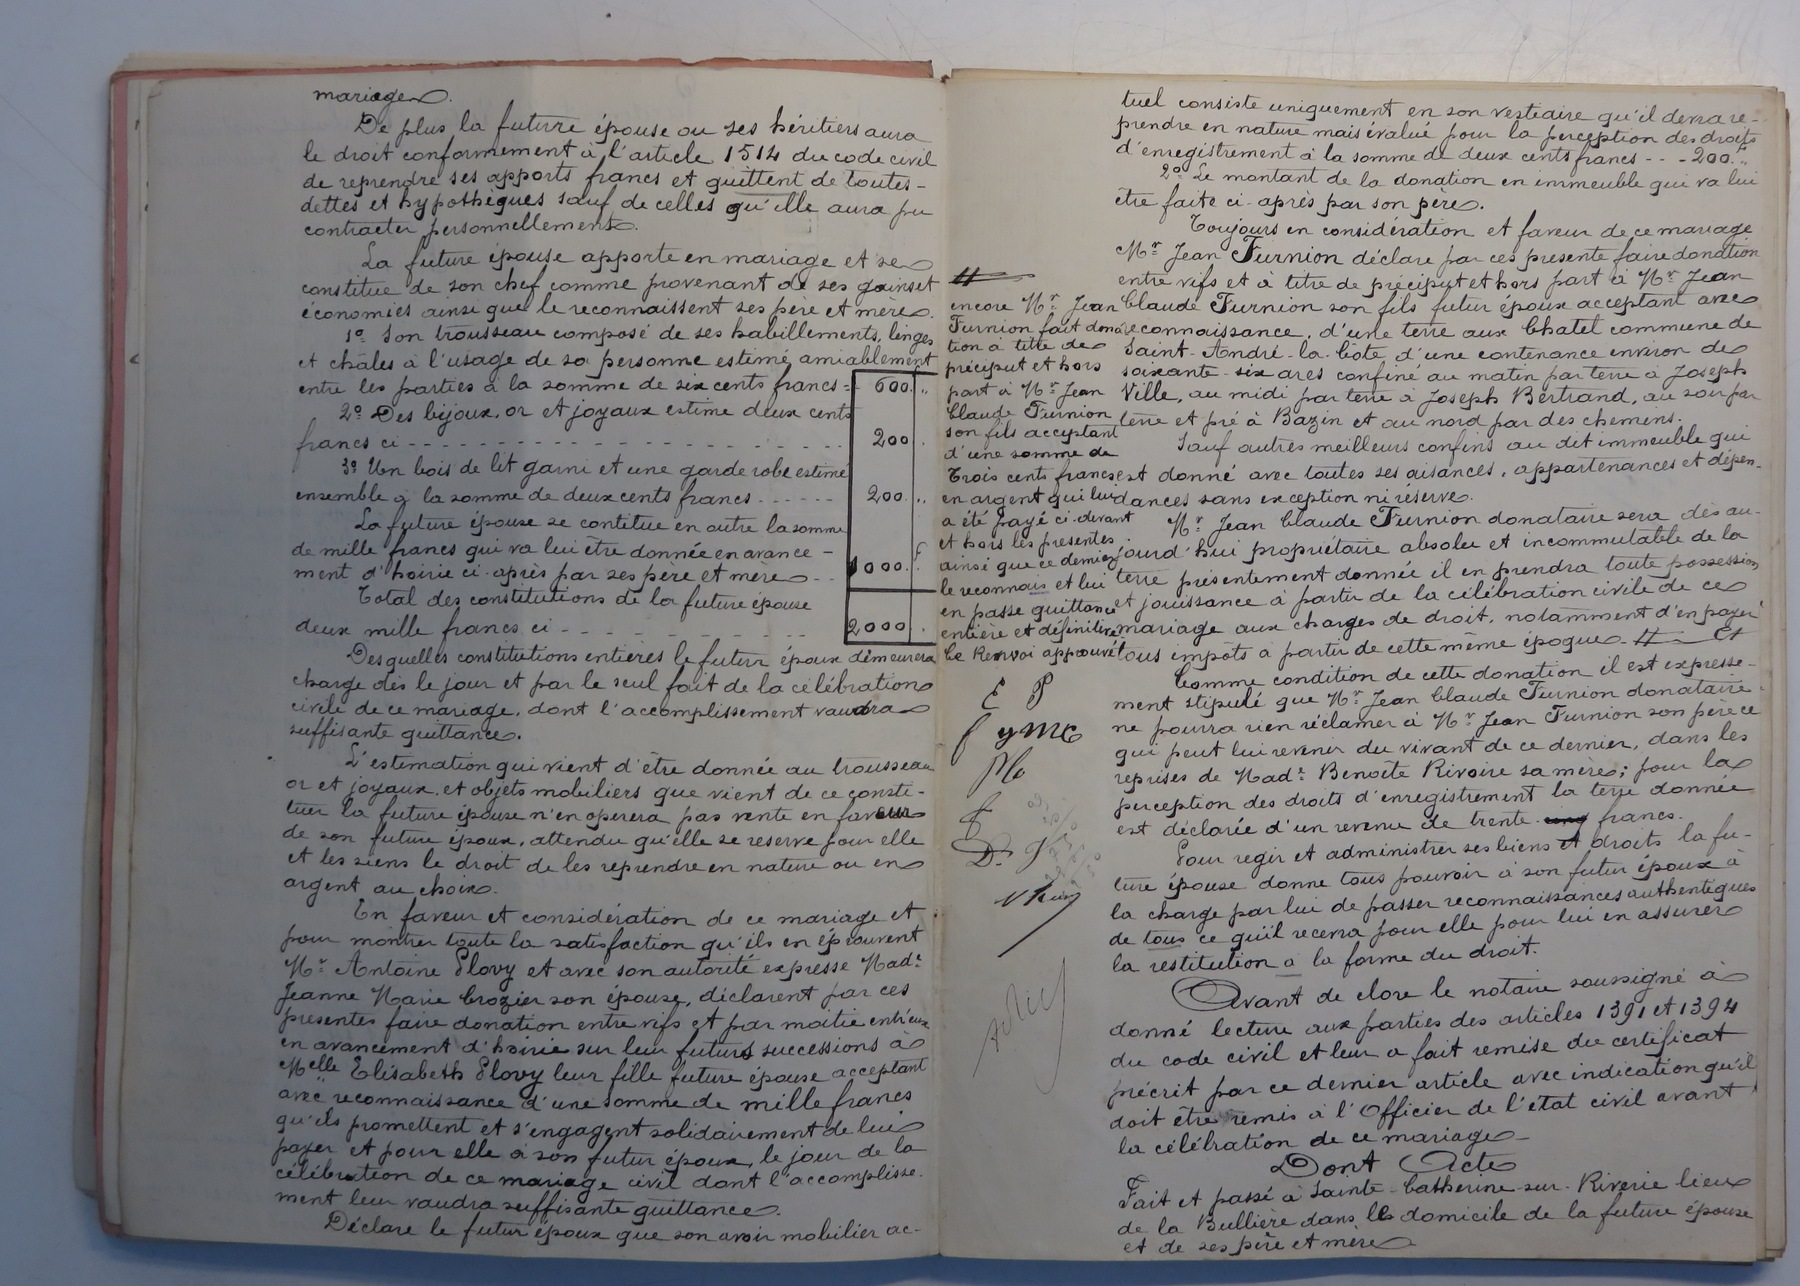 mariage.
De plus la future épouse ou ses héritiers aura
le droit conformement à l'article 1514 du code civil
de reprendre ses apports francs et quittent de toutes-
dettes et hypothèques sauf de celles qu'elle aura pu
contracter personnellement.
La future épouse apporte en mariage et se
constitue de son chef comme provenant de ses gains et
économies ainsi que le reconnaissent ses père et mère.
1º Son trousseau composé de ses habillements, linges
et châles à l'usage de sa personne estimé amiablement
entre les parties à la somme de six cents francs = 600 "
2º Des bijoux, or et joyaux estime deux cents
francs ci - - - - - - - - - - - - 200 .
3º Un bois de lit garni et une garde robe estimé
ensemble à la somme de deux cents francs - - - - - 200. "
La future épouse se contitue en outre la somme
de mille francs qui va lui être donnée en avance-
ment d'hoirie ci-après par ses père et mère - - 1000.
Total des constitutions de la future épouse
deux mille francs ci - - - - - - - - 2000 .
Desquelles constitutions entières le futur époux demeurera
charge dès le jour et par le seul fait de la célébration
civile de ce mariage, dont l'accomplissement vaudra
suffisante quittance.
L'estimation qui vient d'être donnée au trousseau
or et joyaux, et objets mobiliers que vient de ce consti-
tuer la future épouse n'en operera pas vente en faveur
de son future époux, attendu qu'elle se reserve pour elle
et les siens le droit de les reprendre en nature ou en
argent au choix.
En faveur et considération de ce mariage et
pour montrer toute la satisfaction qu'ils en éprouvent
Mr Antoine Plovy et avec son autorité expresse Made
Jeanne Marie Crozier son épouse, déclarent par ces
présentes faire donation entre vifs et par moitie entr'eux
en avancement d'hoirie sur leur futurs successions à
Melle Elisabeth Plovy leur fille future épouse acceptant
avec reconnaissance d'une somme de mille francs
qu'ils promettent et s'engagent solidairement de lui
payer et pour elle à son futur époux, le jour de la
célébration de ce mariage civil dont l'accomplisse-
ment leur vaudra suffisante quittance.
Déclare le futur époux que son avoir mobilier ac-
tuel consiste uniquement en son vestiaire qu'il devra re-
prendre en nature mais évalué pour la perception des droits
d'enregistrement à la somme de deux cents francs - - - 200. "
2º Le montant de la donation en immeuble qui va lui
être faite ci-après par son père.
Toujours en considération et faveur de ce mariage
Mr Jean Furnion déclare par ces presente faire donation
entre vifs et à titre de précipyt et hors part à Mr Jean
Claude Furnion son fils futur époux acceptant avec
reconnaissance, d'une terre aux Chatel commune de
Saint-André-la-Côte, d'une contenance environ de
soixante-six ares confiné au matin par terre à Joseph
Ville, au midi par terre à Joseph Bertrand, au soir par
terre et pré à Bazin et au nord par des chemins.
Sauf autres meilleurs confins au dit immeuble qui
est donné avec toutes ses aisances, appartenances et dépen-
dances sans exception ni réserve.
Mr Jean Claude Furnion donataire sera dès au-
jourd'hui propriétaire absolu et incommutable de la
terre présentement donnée il en prendra toute possession
et jouissance à partir de la célébration civile de ce
mariage aux charges de droit, notamment d'en payer
tous impots à partir de cette même époque - # Et
Comme condition de cette donation il est expresse-
ment stipulé que Mr Jean Claude Furnion donataire
ne pourra rien réclamer à Mr Jean Furnion son père ce
qui peut lui revenir du vivant de ce dernier, dans les
reprises de Made Benoîte Rivoire sa mère; pour la
perception des droits d'enregistrement la terre donnée
est déclarée d'un revenu de trente francs.
Pour regir et administrer ses biens et droits la fu-
ture épouse donne tous pouvoir à son futur époux à
la charge par lui de passer reconnaissances authentiques
de tous ce qu'il recevra pour elle pour lui en assurer
la restitution a la forme du droit.
Avant de clore le notaire soussigné à
donné lecture aux parties des articles 1391 et 1394
du code civil et leur a fait remise du certificat
précrit par ce dernier article avec indication qu'il
doit être remis à l'Officier de l'état civil avant
la célébration de ce mariage -
Dont Acte
Fait et passé à Sainte-Catherine-sur-Riverie lieu
de la Bullière dans le domicile de la future épouse
et de ses père et mère
#
encore Mr Jean
Furnion fait dona
tion à titre de
préciput et hors
part à Mr Jean
Claude Furnion
son fils acceptant
d'une somme de
Trois cents francs
en argent qui lui
a été payé ci-devant
et hors les présentes
ainsi que ce dernier
le reconnais et lui
en passe quittance
entière et définitive
Ce Renvoi approuvé
E P
f y mc
D. J